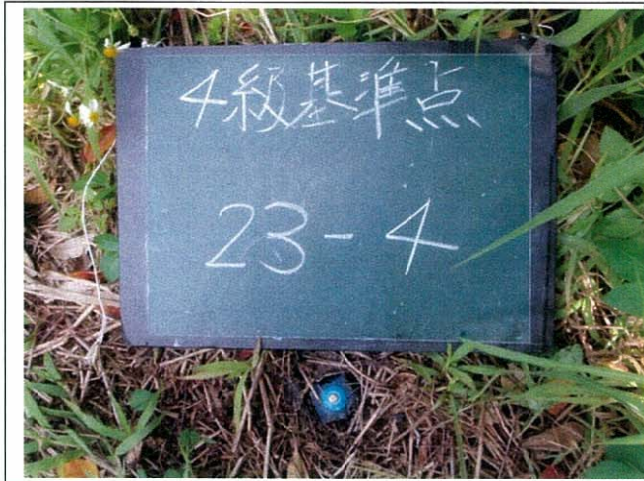 4級基準点
23-4